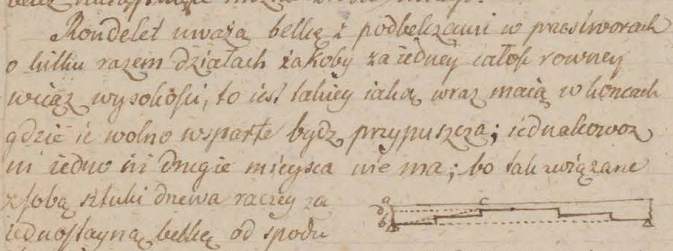 Rondelet uważa belkę z podbelczami w przestworach
o kilku razem działach żakoby za iedney całość rowney
wciąż wysokości, to iest takiey iaką wraz maią w końcach
gdzie ie wolno wsparte bydz przypuszcza; iednakowoż
ni iedno ni drugie mieysca nie ma; bo tak związane
z sobą sztuki drzewa raczey za
iednostayną belkę od spodu
a c